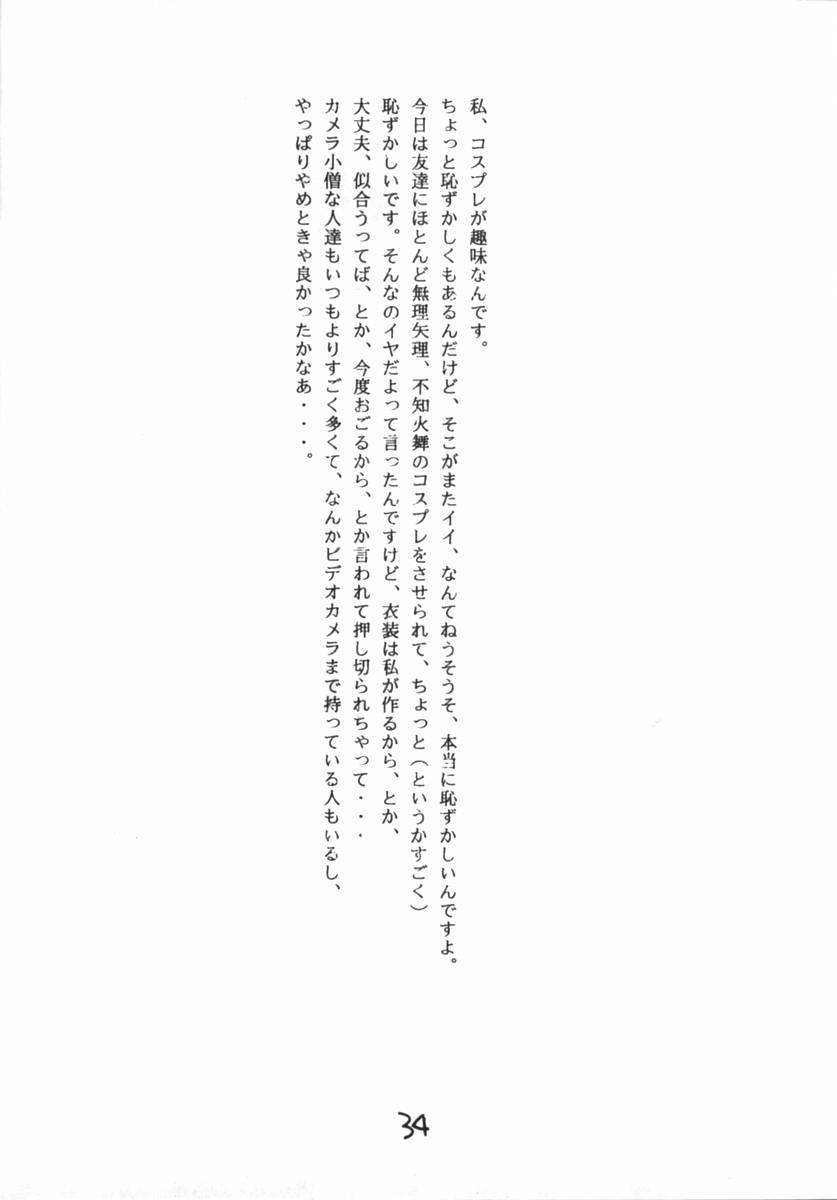 私、コスプレが趣味なんです。
ちょっと恥ずかしくもあるんだけど、そこがまたイイ、なんてねうそうそ、本当に恥ずかしいんですよ。
今日は友達にほとんど無理矢理、不知火舞のコスプレをさせられて、ちょっと（というかすごく）
恥ずかしいです。そんなのイヤだよって言ったんですけど、衣装は私が作るから、とか、
大丈夫、似合うってば、とか、今度おごるから、とか言われて押し切られちゃって・・・
カメラ小僧な人達もいつもよりすごく多くて、なんかビデオカメラまで持っている人もいるし、
やっぱりやめときゃ良かったかなあ・・・。
34